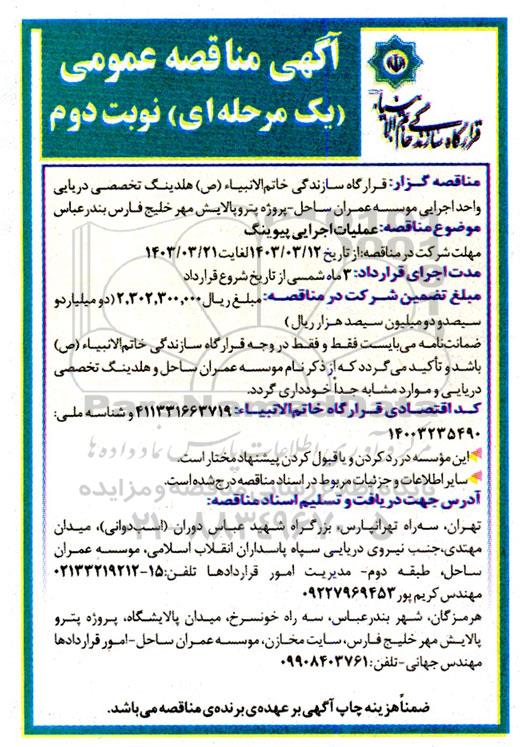 آگهی مناقصه عمومی
(یک مرحله‌ای) نوبت دوم
قرارگاه سازندگی خاتم الانبیاء
مناقصه گزار: قرارگاه سازندگی خاتم‌الانبیاء (ص) هلدینگ تخصصی دریایی
واحد اجرایی موسسه عمران ساحل-پروژه پتروپالایش مهر خلیج فارس بندرعباس
موضوع مناقصه: عملیات اجرایی پیوینگ
مهلت شرکت در مناقصه: از تاریخ ۱۴۰۳/۰۳/۱۲ لغایت ۱۴۰۳/۰۳/۲۱
مدت اجرای قرارداد: ۳ ماه شمسی از تاریخ شروع قرارداد
مبلغ تضمین شرکت در مناقصه: مبلغ ریال ۲,۳۰۲,۳۰۰,۰۰۰ (دو میلیارد و
سیصد و دو میلیون سیصد هزار ریال)
ضمانت‌نامه می‌بایست فقط و فقط در وجه قرارگاه سازندگی خاتم‌الانبیاء (ص)
باشد و تأکید می‌گردد که از ذکر نام موسسه عمران ساحل و هلدینگ تخصصی
دریایی و موارد مشابه جداً خودداری گردد.
کد اقتصادی قرارگاه خاتم‌الانبیاء: ۴۱۱۳۳۱۶۶۳۷۱۹ و شناسه ملی:
۱۴۰۰۳۲۳۵۴۹۰
این مؤسسه در رد کردن و یا قبول کردن پیشنهاد مختار است.
سایر اطلاعات و جزئیات مربوط در اسناد مناقصه درج شده است.
آدرس جهت دریافت و تسلیم اسناد مناقصه:
تهران، سه‌راه تهرانپارس، بزرگراه شهید عباس دوران (اسب‌دوانی)، میدان
مهتدی، جنب نیروی دریایی سپاه پاسداران انقلاب اسلامی، موسسه عمران
ساحل، طبقه دوم- مدیریت امور قراردادها تلفن: ۱۵-۰۲۱۳۳۲۱۹۲۱۲
مهندس کریم پور ۰۹۲۲۷۹۶۹۴۵۳
هرمزگان، شهر بندرعباس، سه راه خونسرخ، میدان پالایشگاه، پروژه پترو
پالایش مهر خلیج فارس، سایت مخازن، موسسه عمران ساحل-امور قراردادها
مهندس جهانی-تلفن: ۰۹۹۰۸۴۰۳۷۶۱
ضمناً هزینه چاپ آگهی بر عهده‌ی برنده‌ی مناقصه می‌باشد.